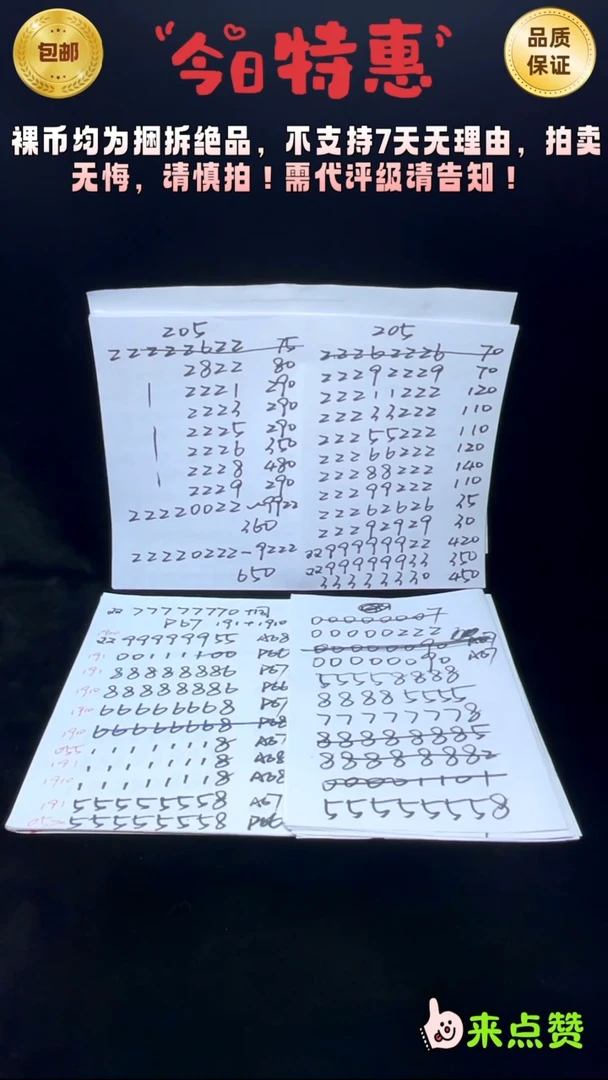 包邮
今日特惠
品质
保证
裸币均为捆拆绝品，不支持7天无理由，拍卖
无悔，请慎拍！需代评级请告知！
205
22222622 75
2822 80
2221 290
2223 290
2225 290
2226 350
2228 480
2229 290
22220022-9922
360
22220222-9222
650
205
22262226 70
22292229 70
22211222 120
22233222 110
22255222 110
22266222 120
22288222 140
22299222 110
22262626 35
22292929 30
2299999922 420
2299999933 350
33333330 450
22 77777770
P67 191+1910
2299999955 A68
191 00111100 P66
191 88888886 P67
1910 88888886 P66
1910 66666668 P67
1910 66666668 P68
055 11111118 A67
191 11111118 A68
1910 11111118 A68
191 55555558 A67
55555558
00000007
00000222
00000090 A67
55558888
88885555
77777778
88888885
88888882
00001101
55555558
来点赞